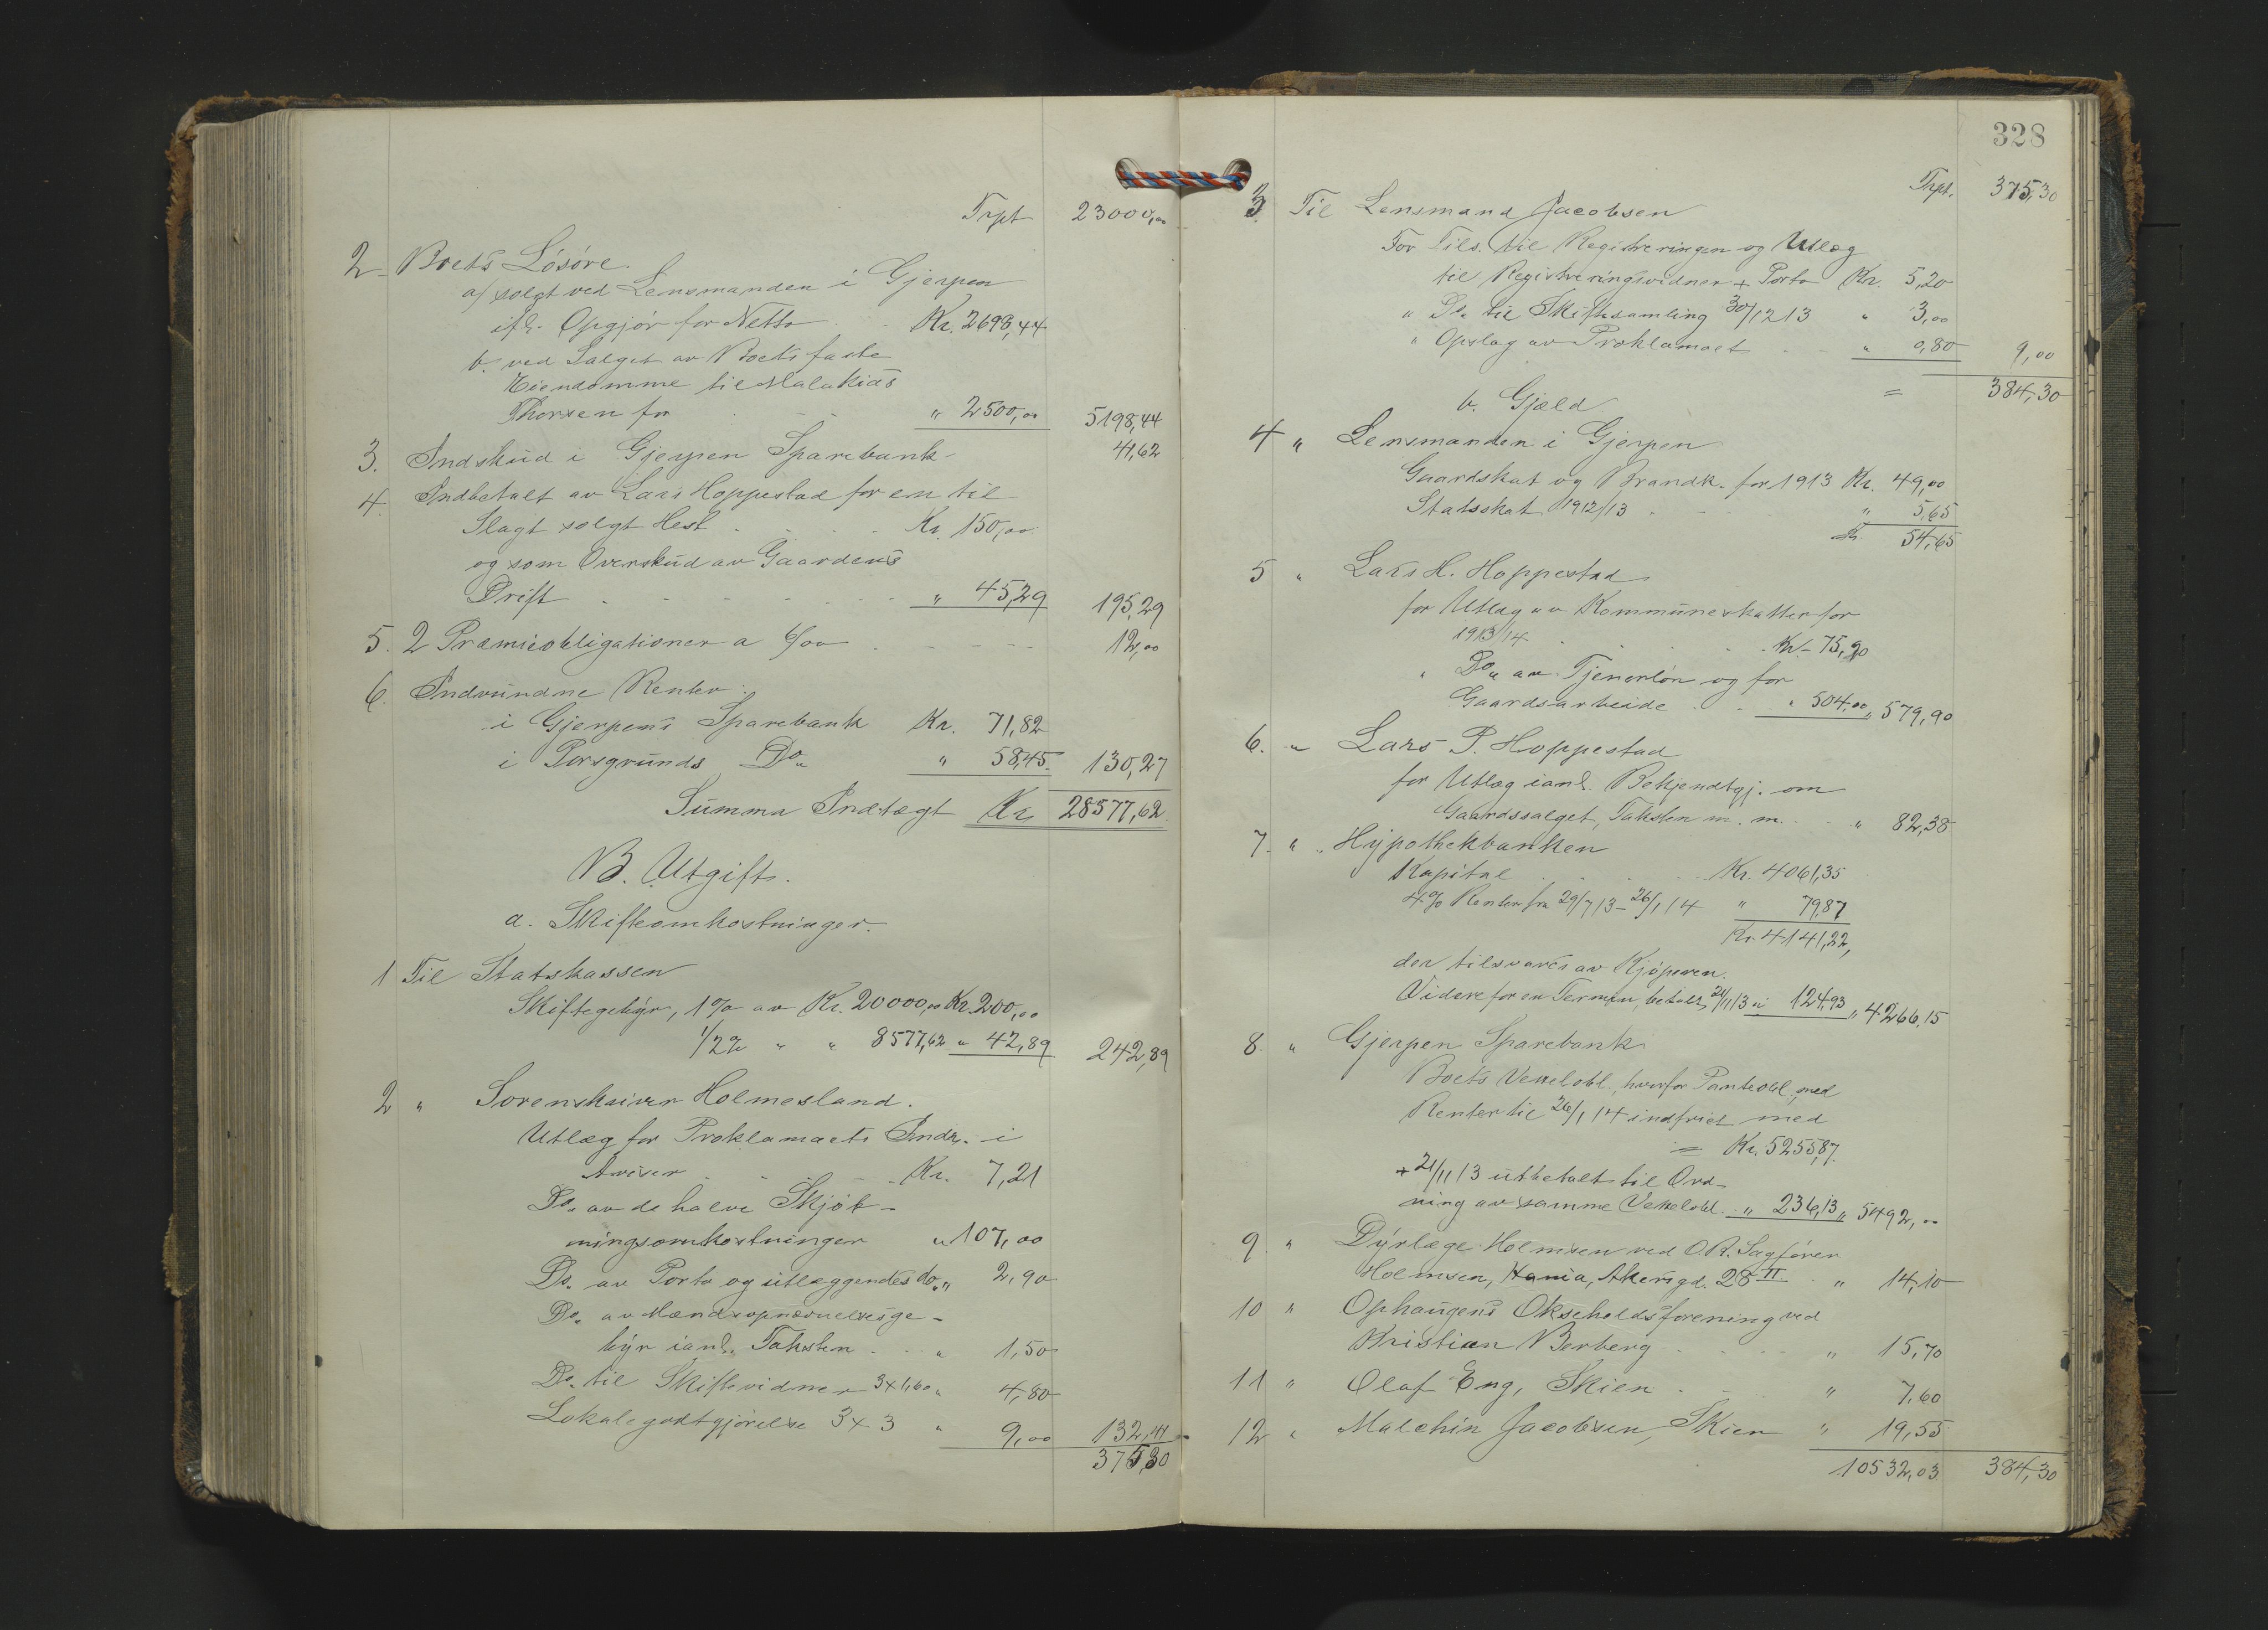 Trpt 23000,00
2 Boets Løsøre.
a/ solgt ved Lensmanden i Gjerpen
ifl. Opgjør for Netto Kr. 2698,44
b. ved Salget av Boets faste
Eiendomme til Malakias
Thorsen for " 2500,00 5198,44
3. Indskud i Gjerpen Sparebank 41,62
4. Indbetalt av Lars Hoppestad for en til
Slagt solgt Hest Kr. 150,00
og som Overskud av Gaardens
Drift " 45,29 195,29
5. 2 Præmieobligationer a 6/00 12,00
6. Indvundne Renter:
i Gjerpens Sparebank Kr. 71,82
i Porsgrunds Do. " 58,45 130,27
Summa Indtægt Kr. 28577,62
B. Utgift.
a. Skifteomkostninger.
1 Til Statskassen
Skiftegebyr, 1% av Kr. 20000,00 Kr. 200,00
1/2% " " 8577,62 " 42,89 242,89
2 " Sorenskriver Holmesland.
Utlæg for Proklamaets Indr. i
Aviser Kr. 7,21
Do. av de halve Skjøt-
ningsomkostninger " 107,00
Do. av Porto og utlæggendes do. " 2,90
Do. av Mændsopnævnelsesge-
byr ianl. Taksten " 1,50
Do. til Skiftevidner 3x1,60 " 4,80
Lokalegodtgjørelse 3x3 " 9,00 132,41
375,30
328
Trpt. 375,30
3 Til Lensmand Jacobsen
For Tils. til Registreringen og Utlæg
til Registreringsvidner + Porto Kr. 5,20
" Do. til Skiftesamling 30/12 13 " 3,00
" Opslag av Proklamaet " 0,80 9,00
= 384,30
b. Gjæld
4 " Lensmanden i Gjerpen
Gaardskat og Brandk. for 1913 Kr. 49,00
Statsskat 1912/13 " 5,65
Kr. 54,65
5 " Lars H. Hoppestad
for Utlæg av Kommuneskatter for
1913/14 Kr. 75,90
" Do. av Tjenerløn og for
Gaardsarbeide " 504,00 " 579,90
6. " Lars P. Hoppestad
for Utlæg ianl. Bekjendtgj. om
Gaardssalget, Taksten m. m. " 82,38
7. " Hypothekbanken
Kapital Kr. 4061,35
4% Renter fra 29/7 13 - 26/1 14 " 79,87
Kr. 4141,22,
der tilsvares av Kjøperen.
Videre for en Termin, betalt 21/11 13 " 124,93 " 4266,15
8. " Gjerpen Sparebank
Boets Vexelobl., hvorfor Panteobl., med
Renter til 26/1 14 indfriet med
= Kr. 5255,87
+ 21/11 13 utbetalt til Ord-
ning av samme Vexelobl. " 236,13 " 5492,00
9. " Dyrlæge Holmsen ved O.R. Sagfører
Holmsen, Krania, Akersgd. 28 II " 14,10
10 " Ophaugens Okseholdsforening ved
Kristian Berberg " 15,70
11 " Olaf Eng, Skien " 7,60
12 " Malchin Jacobsen, Skien " 19,55
10532,03 384,30